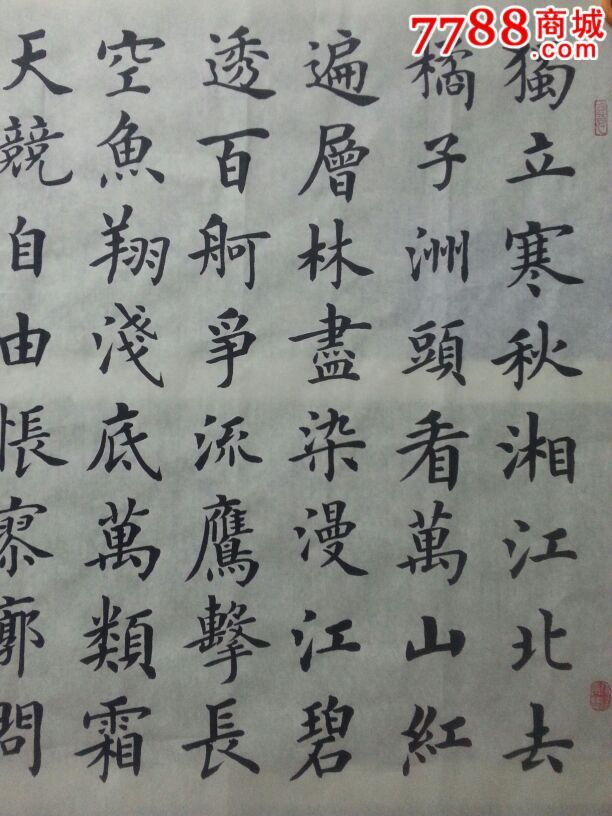 7788商城
.com
獨立寒秋湘江北去
橘子洲頭看萬山紅
遍層林盡染漫江碧
透百舸爭流鷹擊長
空魚翔淺底萬類霜
天競自由悵寥廓問